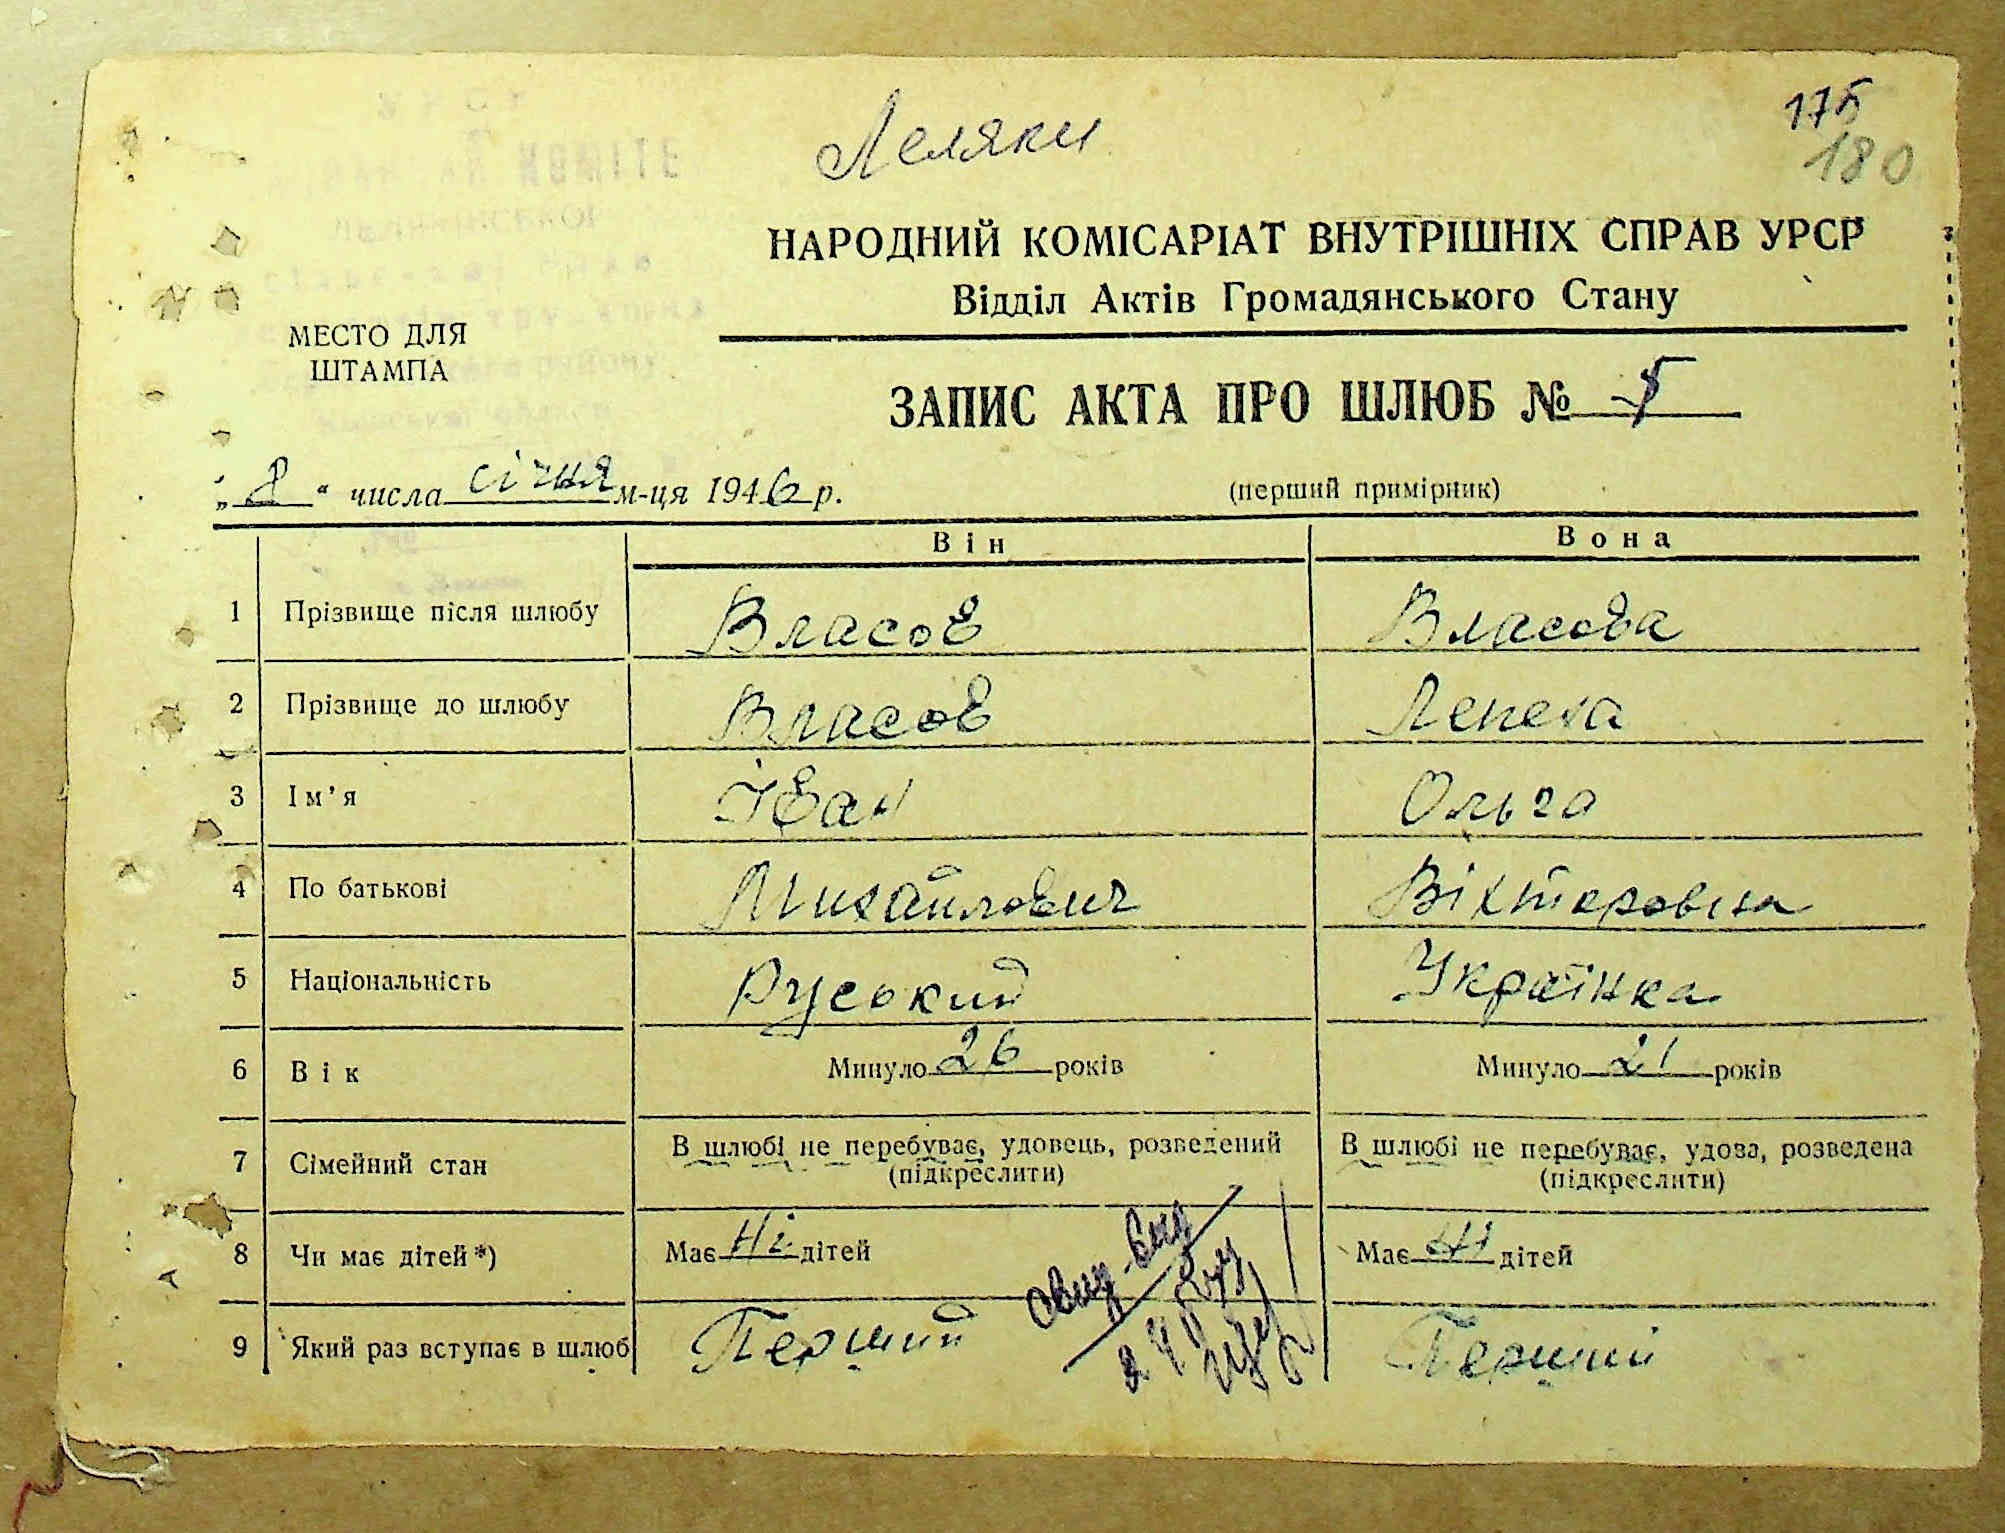 Леляки
175
180
НАРОДНИЙ КОМІСАРІАТ ВНУТРІШНІХ СПРАВ УРСР
Відділ Актів Громадянського Стану
МЕСТО ДЛЯ
ШТАМПА
ЗАПИС АКТА ПРО ШЛЮБ № 5
„8“ числа січня м-ця 1946 р.
(перший примірник)
Він Вона
1 Прізвище після шлюбу Власов Власова
2 Прізвище до шлюбу Власов Лепеха
3 Ім’я Іван Ольга
4 По батькові Михайлович Вікторовна
5 Національність Руський Українка
6 Вік Минуло 26 років Минуло 21 років
7 Сімейний стан В шлюбі не перебуває, удовець, розведений В шлюбі не перебуває, удова, розведена
(підкреслити) (підкреслити)
8 Чи має дітей*) Має Ні дітей Має Ні дітей
9 Який раз вступає в шлюб Перший Перший